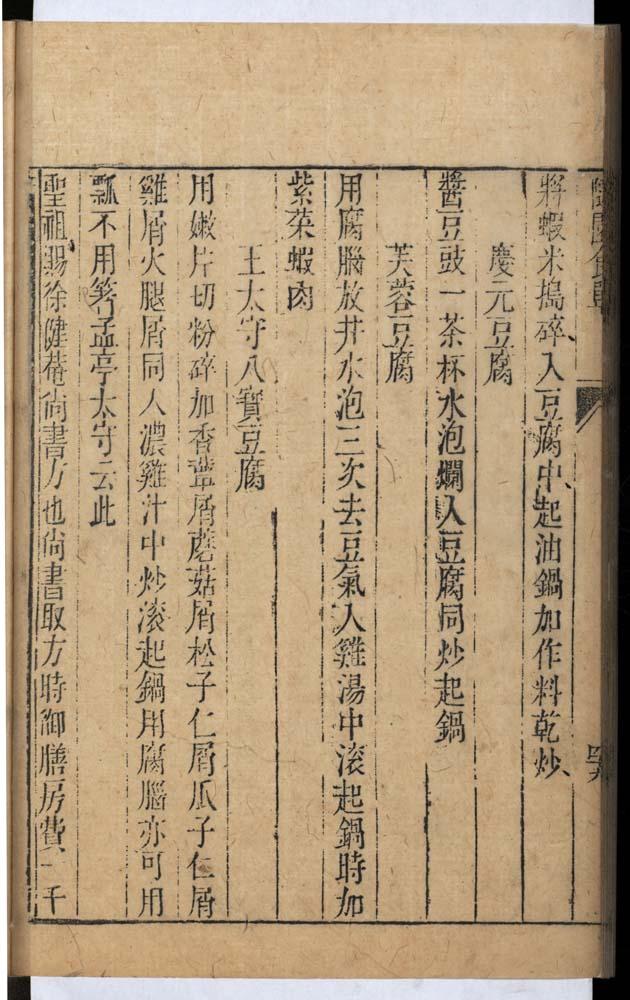 將蝦米搗碎入豆腐中起油鍋加作料乾炒
慶元豆腐
醬豆豉一茶杯水泡爛入豆腐同炒起鍋
芙蓉豆腐
用腐腦放井水泡三次去豆氣入雞湯中滾起鍋時加
紫菜蝦肉
王太守八寶豆腐
用嫩片切粉碎加香蕈屑蘑菇屑松子仁屑瓜子仁屑
雞屑火腿屑同入濃雞汁中炒滾起鍋用腐腦亦可用
瓢不用箸孟亭太守云此
聖祖賜徐健菴尚書方也尚書取方時御膳房費一千